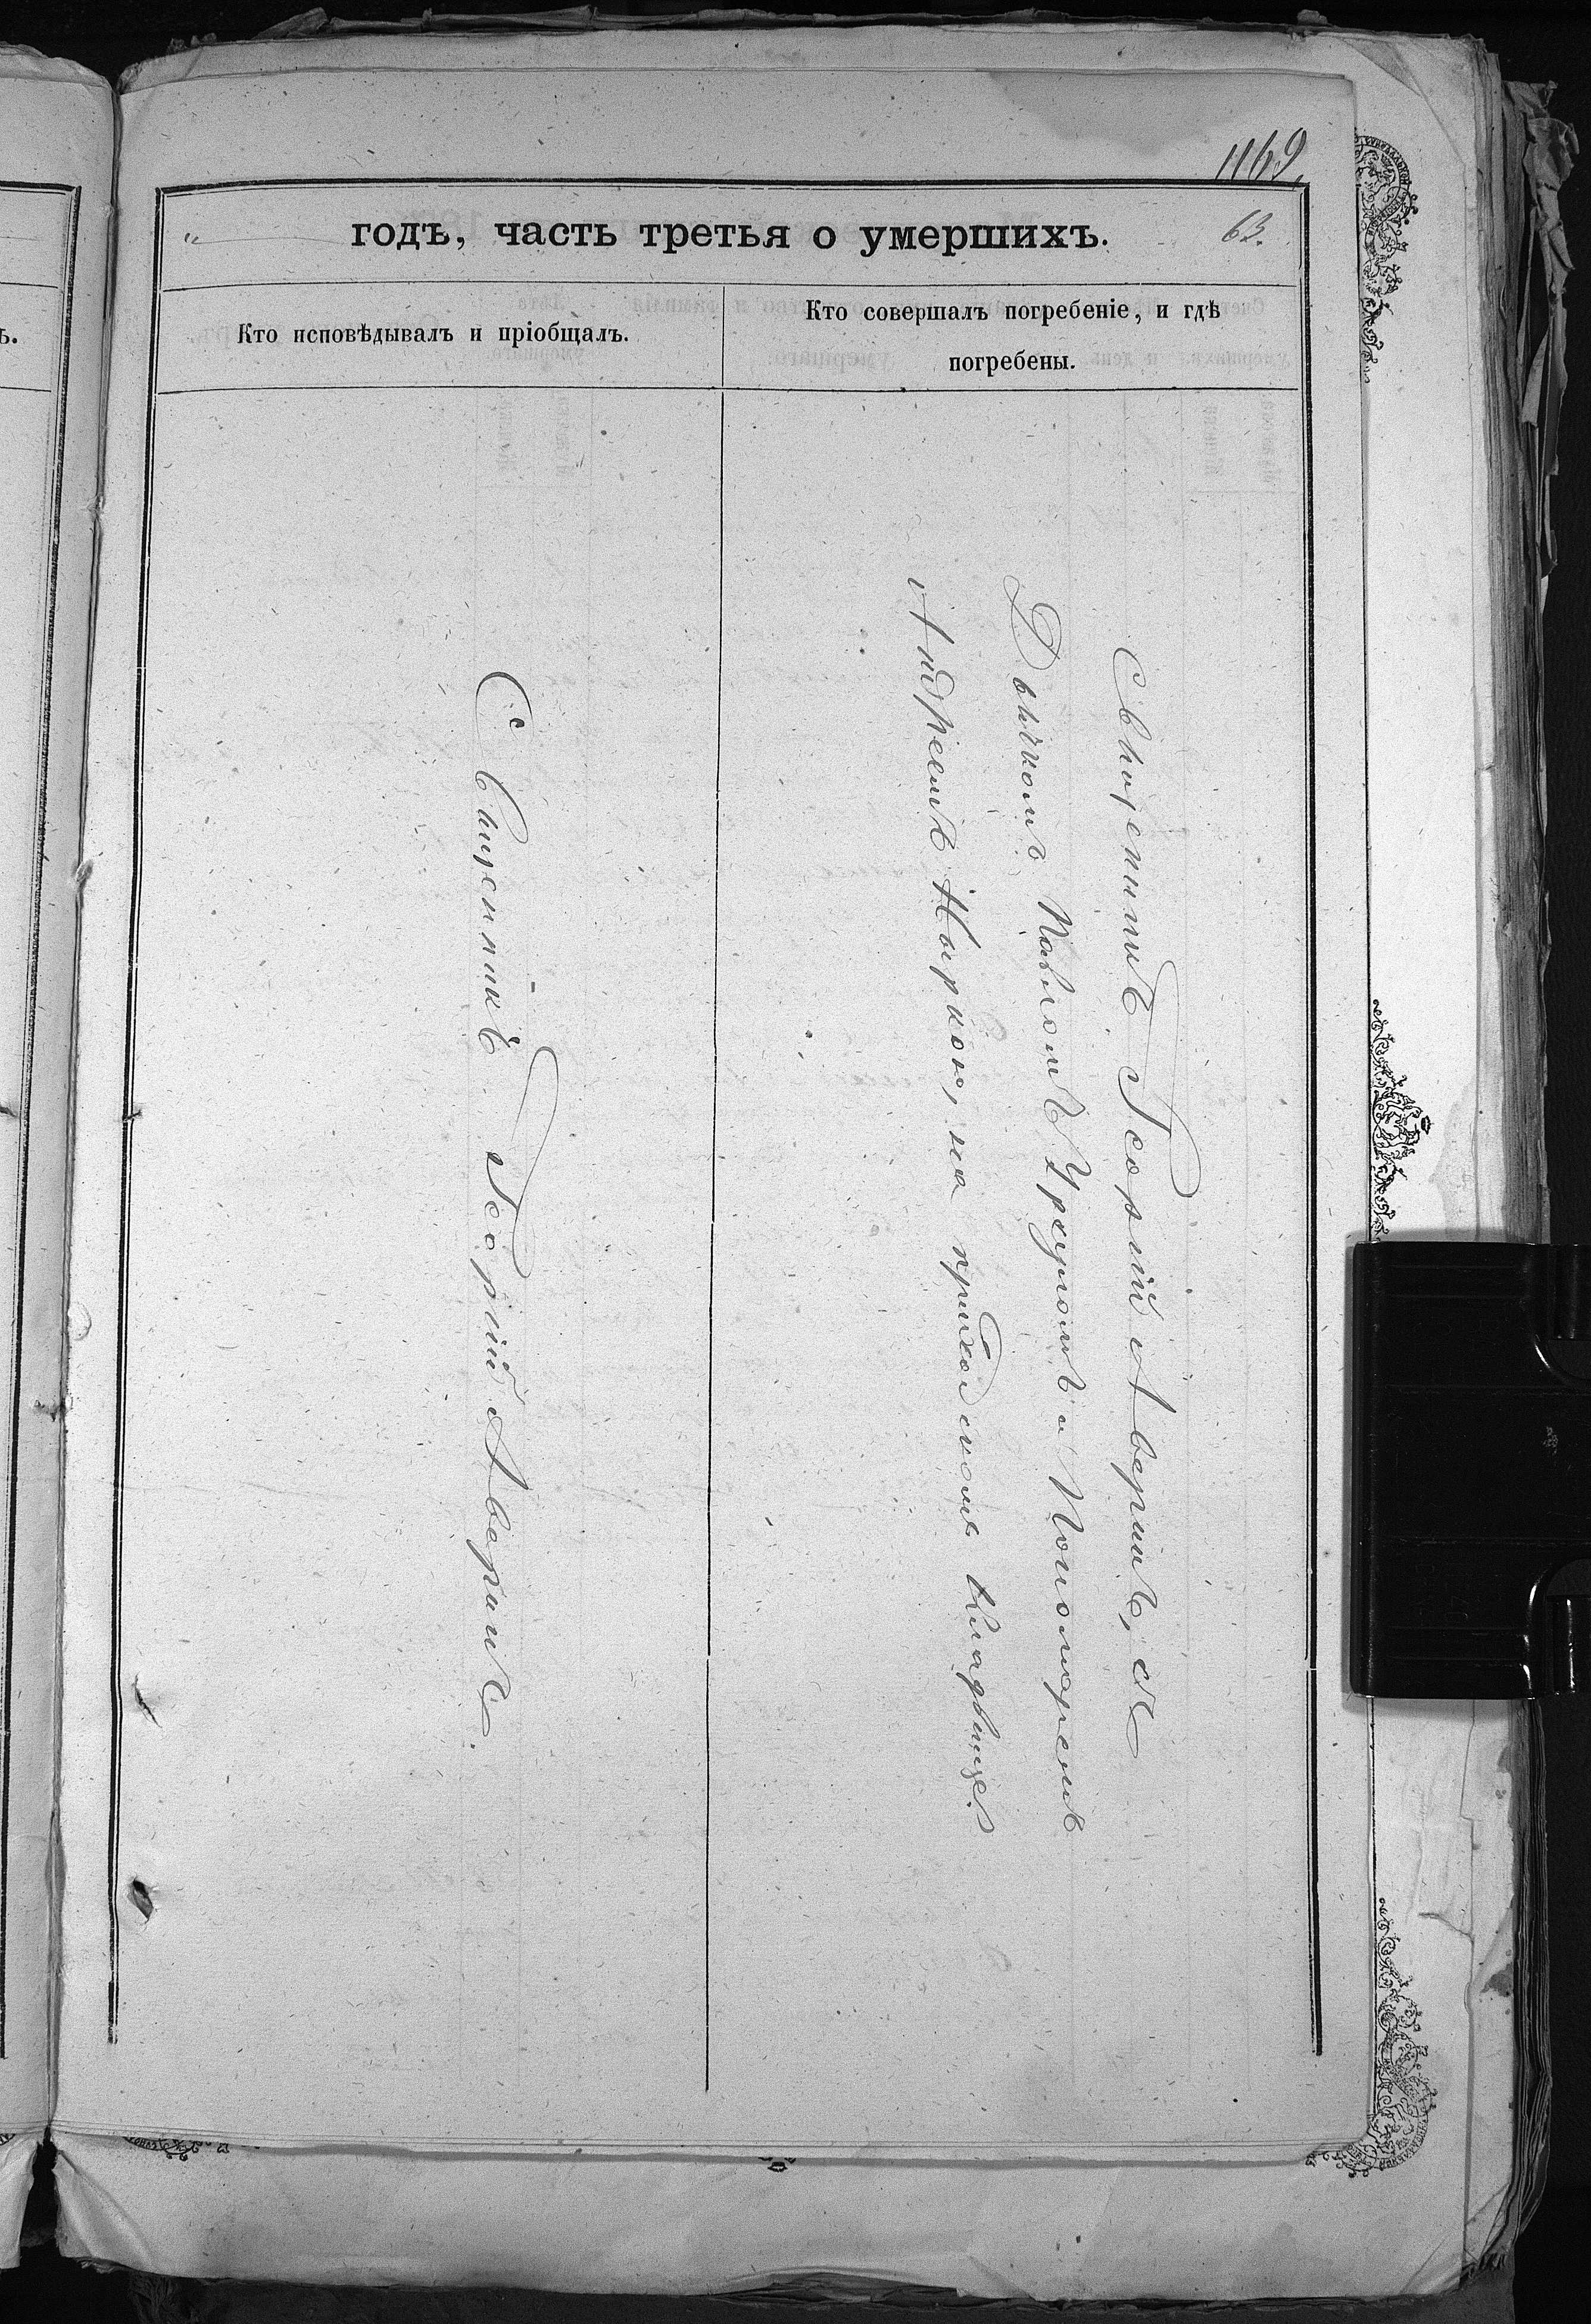 1169
годъ, часть третья о умершихъ. 63.
Кто исповѣдывалъ и пріобщалъ.
Кто совершалъ погребеніе, и гдѣ
погребены.
Священникъ Георгій Аверинъ.
Священникъ Георгій Аверинъ, съ
Дьячкомъ Павломъ и Пономаремъ
Андреемъ на приходскомъ кладбище.